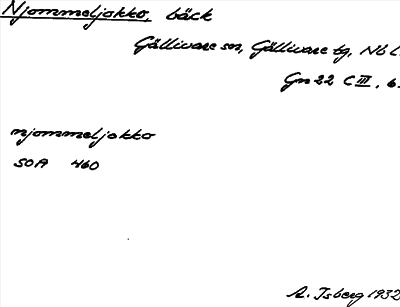 Njommeljokko, bäck
Gällivare sn, Gällivare tg, Nb l.
Gn 22 C III, 6
njommeljokko
SOA 460
A. Isberg 1932